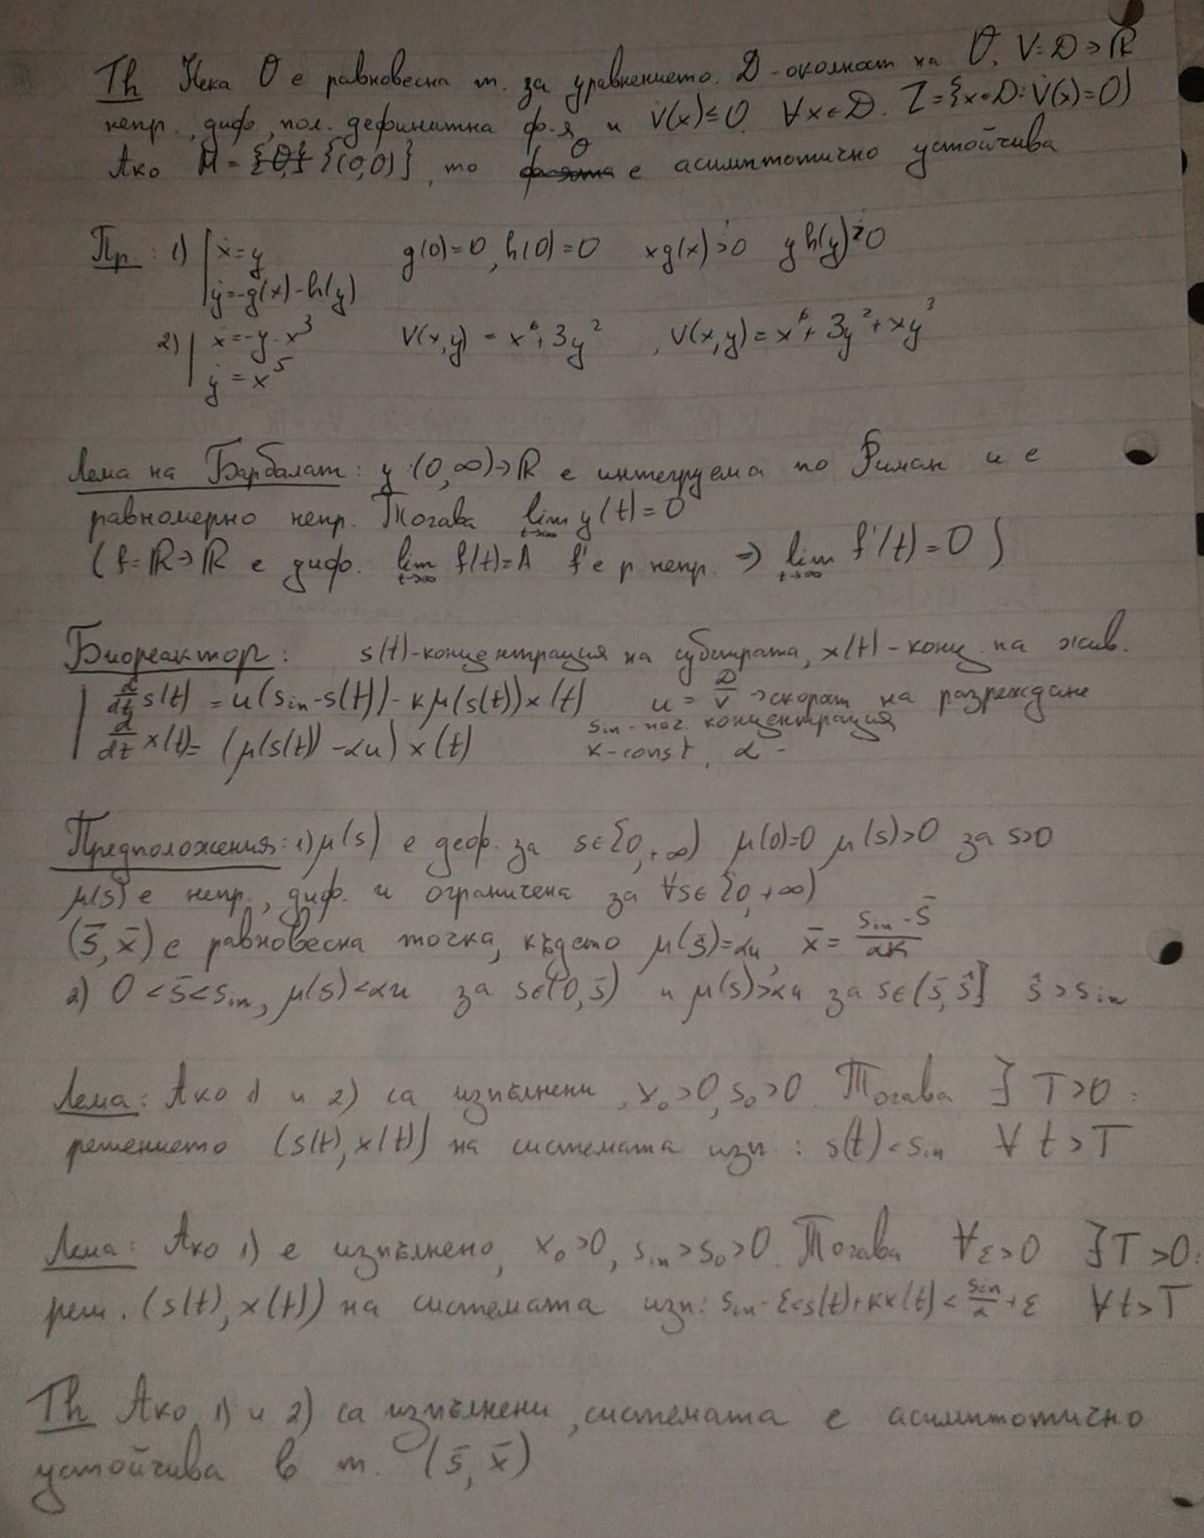 Th Нека O е равновесна т. за уравнението. D-околност на O, V: D→R
непр., диф., пол. дефинитна ф-я и V̇(x)≤0 ∀x∈D. Z={x∈D: V̇(x)=0}
Ако M = {(0,0)}, то O е асимптотично устойчива
Пр.: 1) | ẋ=y g(0)=0, h(0)=0 xg(x)>0 yh(y)≥0
| ẏ=-g(x)-h(y)
2) | ẋ=-y-x³ V(x,y) = x⁶+3y² , V(x,y)=x⁶+3y²+xy³
| ẏ = x⁵
Лема на Барбалат: y:(0,∞)→R е интегруема по Риман и е
равномерно непр. Тогава lim_{t→∞} y(t)=0
(f: R→R е диф. lim_{t→∞} f(t)=A f' е р непр. ⇒ lim_{t→∞} f'(t)=0)
Биореактор: s(t)-концентрация на субстрата, x(t)-конц. на жив.
| d/dt s(t) = u(s_in-s(t))-kμ(s(t))x(t) u = D/V →скорост на разреждане
| d/dt x(t)= (μ(s(t))-αu)x(t) s_in-нач. концентрация
k-const, α -
Предположения: 1) μ(s) е деф. за s∈[0,+∞) μ(0)=0 μ(s)>0 за s>0
μ(s) е непр., диф. и ограничена за ∀s∈[0,+∞)
(s̄, x̄) е равновесна точка, където μ(s̄)=αu, x̄ = (s_in-s̄)/(αk)
2) 0<s̄<s_in, μ(s)<αu за s∈(0,s̄) и μ(s)>αu за s∈(s̄,ŝ] ŝ>s_in
Лема: Ако 1) и 2) са изпълнени, x₀>0, s₀>0 Тогава ∃ T>0:
решението (s(t),x(t)) на системата изп: s(t)<s_in ∀ t>T
Лема: Ако 1) е изпълнено, x₀>0, s_in>s₀>0. Тогава ∀ε>0 ∃T>0:
реш. (s(t),x(t)) на системата изп: s_in-ε<s(t)+kx(t)<s_in/α+ε ∀t>T
Th Ако 1) и 2) са изпълнени, системата е асимптотично
устойчива в т. (s̄, x̄)